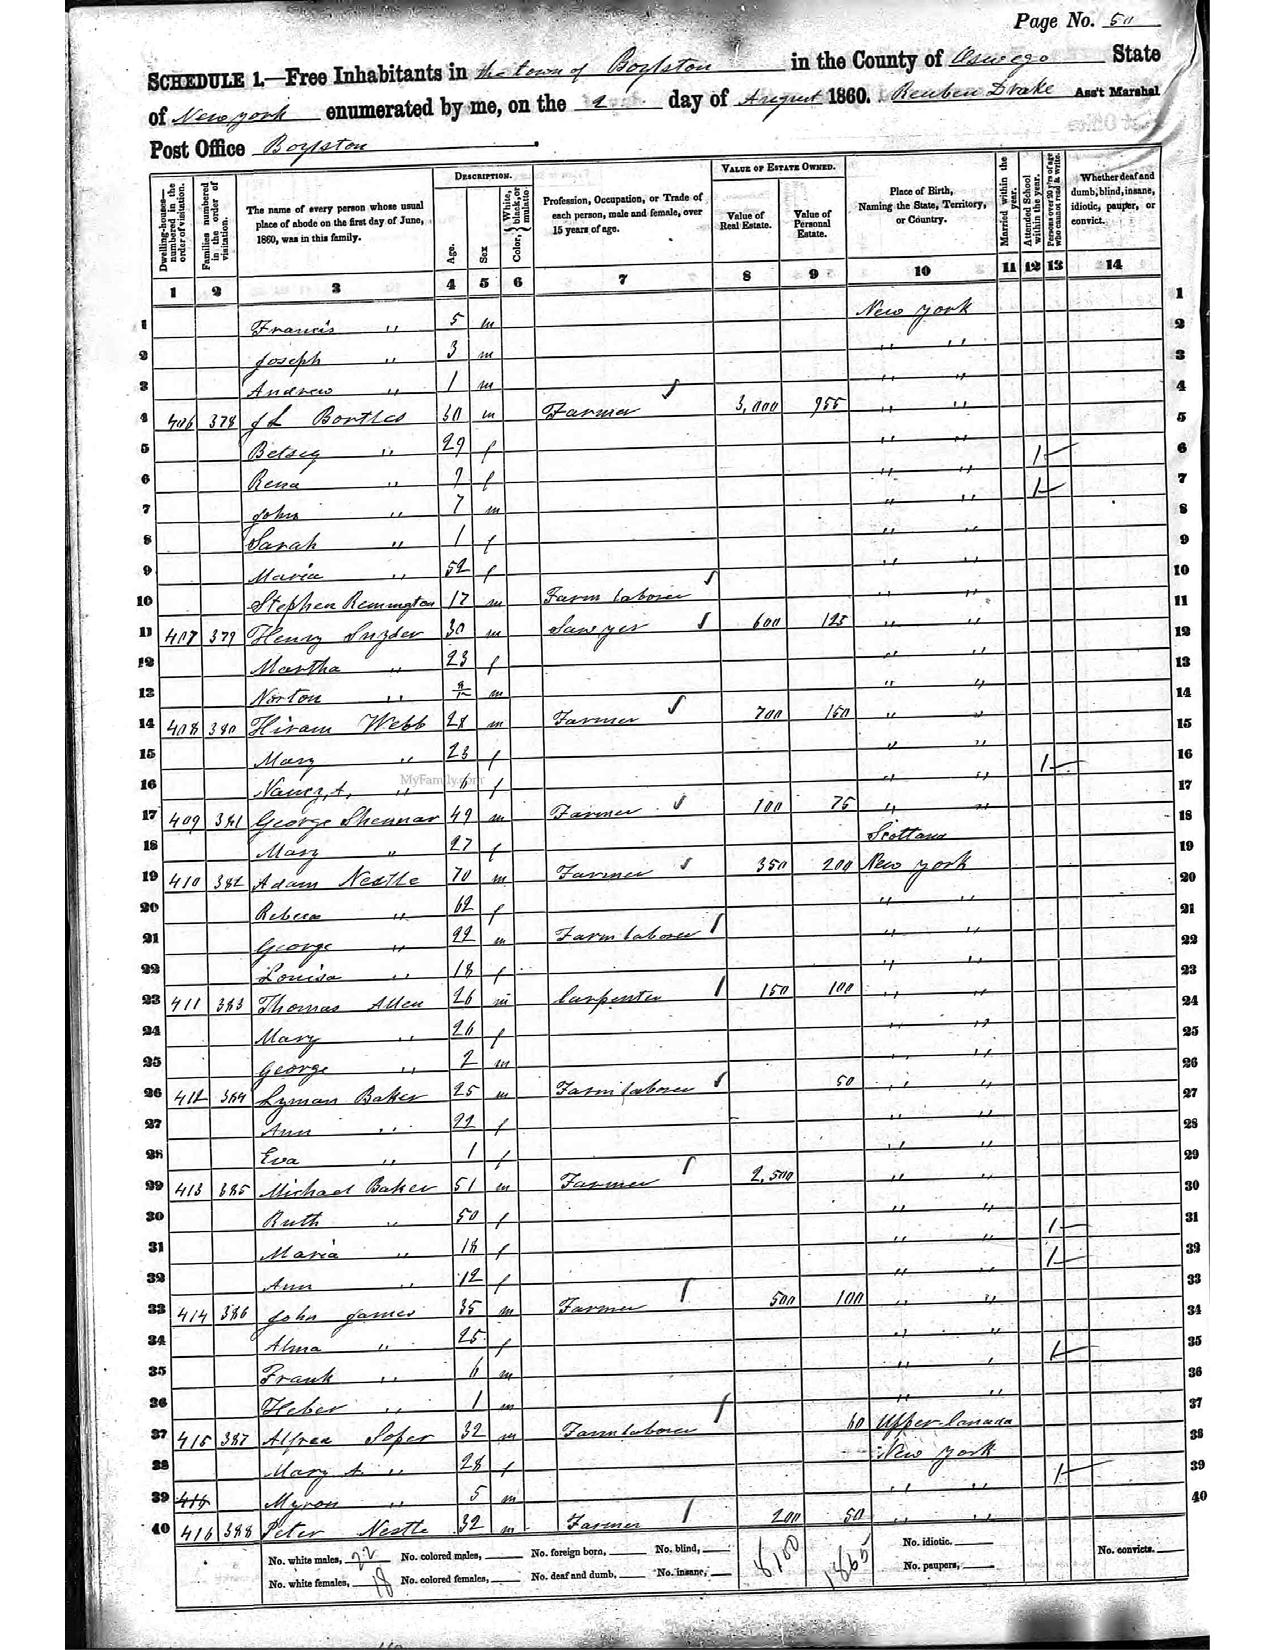 Page No. 50
SCHEDULE 1.—Free Inhabitants in the town of Boylston in the County of Oswego State
of New york enumerated by me, on the 2 day of August 1860. Reuben Drake Ass't Marshal
Post Office Boylston
Dwelling-houses—numbered in the order of visitation. Families numbered in the order of visitation. The name of every person whose usual place of abode on the first day of June, 1860, was in this family. DESCRIPTION. Age. Sex Color, White, black, or mulatto Profession, Occupation, or Trade of each person, male and female, over 15 years of age. VALUE OF ESTATE OWNED. Value of Real Estate. Value of Personal Estate. Place of Birth, Naming the State, Territory, or Country. Married within the year. Attended School within the year. Persons over 20 y'rs of age who cannot read & write. Whether deaf and dumb, blind, insane, idiotic, pauper, or convict.
1 2 3 4 5 6 7 8 9 10 11 12 13 14
1 Francis " 5 m New york 1
2 Joseph " 3 m " " 2
3 Andrew " 1 m " " 3
4 406 378 J L Bortles 30 m Farmer 3,000 955 " " 4
5 Betsey " 29 f " " 5
6 Rena " 9 f " " 1 6
7 John " 7 m " " 1 7
8 Sarah " 1 f " " 8
9 Maria " 52 f " " 9
10 Stephen Remington 17 m Farm laborer " " 10
11 407 379 Henry Snyder 30 m Sawyer 600 125 " " 11
12 Martha " 23 f " " 12
13 Norton " m " " 13
14 408 380 Hiram Webb 28 m Farmer 700 150 " " 14
15 Mary " 23 f " " 15
16 Nancy, A, " 6 f " " 1 16
MyFamily.com
17 409 381 George Shennar 49 m Farmer 100 75 " " 17
18 Mary " 27 f Scotland 18
19 410 382 Adam Nestle 70 m Farmer 350 200 New york 19
20 Rebeca " 62 f " " 20
21 George " 22 m Farm laborer " " 21
22 Louisa " 18 f " " 22
23 411 383 Thomas Allen 26 m Carpenter 150 100 " " 23
24 Mary " 26 f " " 24
25 George " 2 m " " 25
26 412 384 Lyman Baker 25 m Farm laborer 50 " " 26
27 Ann " 22 f " " 27
28 Eva " 1 f " " 28
29 413 385 Michael Baker 51 m Farmer 2,500 " " 29
30 Ruth " 50 f " " 30
31 Maria " 18 f " " 1 31
32 Ann " 12 f " " 1 32
33 414 386 John James 35 m Farmer 500 100 " " 33
34 Alma " 25 f " " 34
35 Frank " 6 m " " 1 35
36 Heber " 1 m " " 36
37 415 387 Alfred Soper 32 m Farm laborer 60 Upper Canada 37
38 Mary A. " 28 f New york 38
39 416 Myron " 5 m " " 1 39
40 416 388 Peter Nestle 32 m Farmer 200 50 40
No. white males, 22 No. colored males, No. foreign born, No. blind, 8100 1865 No. idiotic. No. convicts.
No. white females, 18 No. colored females, No. deaf and dumb, No. insane, No. paupers,